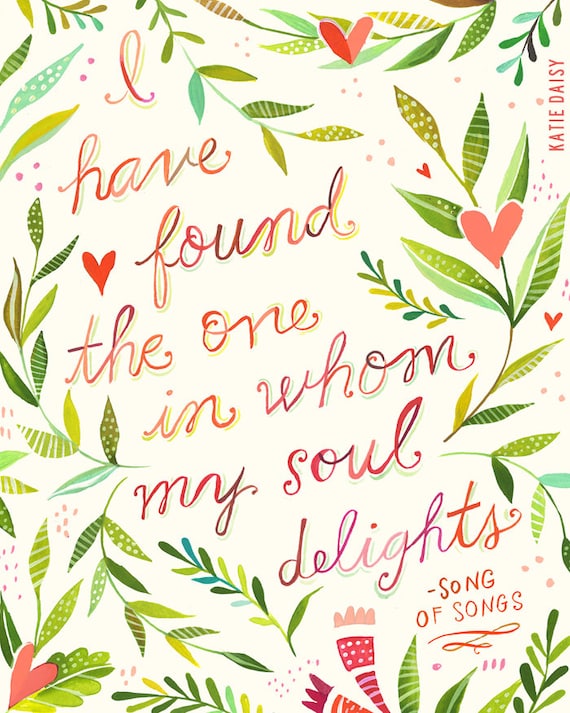 I
have
found
the one
in whom
my soul
delights
-SONG
OF SONGS
KATIE DAISY